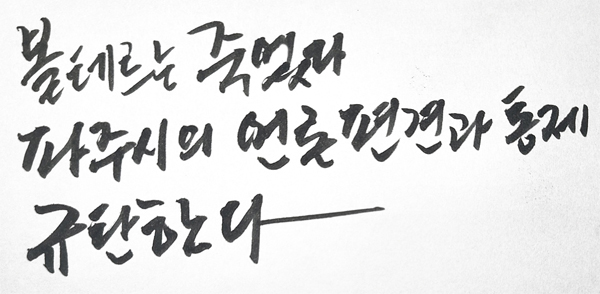 볼테르는 죽었다
파주시의 언론편견과 통제
규탄한다